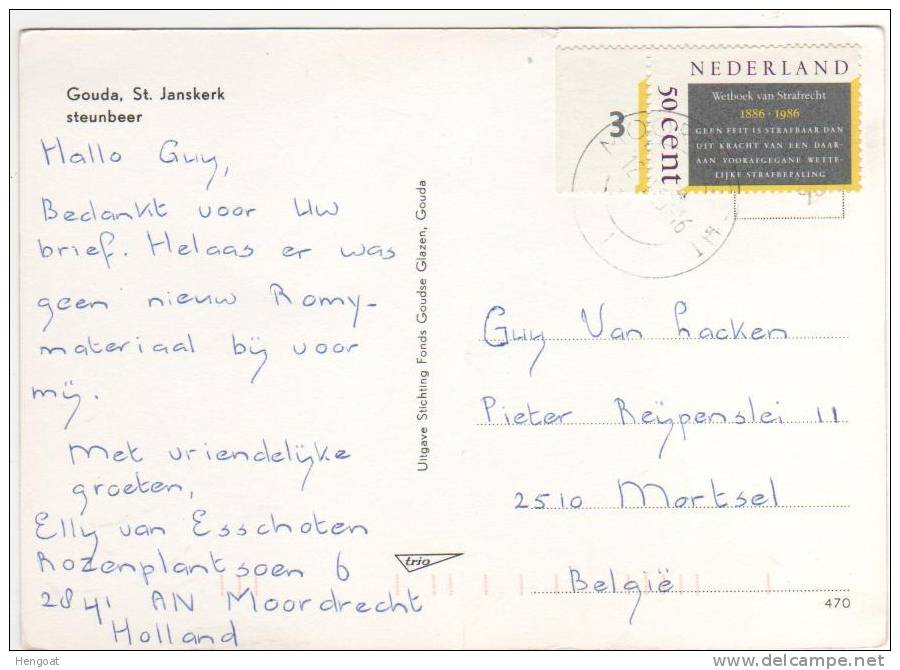 Gouda, St. Janskerk
steunbeer
Hallo Guy,
Bedankt voor Uw
brief. Helaas er was
geen nieuw Romy-
materiaal bij voor
mij.
Met vriendelijke
groeten,
Elly van Esschoten
Rozenplantsoen 6
2841 AN Moordrecht
Holland
Uitgave Stichting Fonds Goudse Glazen, Gouda
trio
3
50 cent
NEDERLAND
Wetboek van Strafrecht
1886 · 1986
GEEN FEIT IS STRAFBAAR DAN
UIT KRACHT VAN EEN DAAR-
AAN VOORAFGEGANE WETTE-
LIJKE STRAFBEPALING
Guy Van Lacken
Pieter Reijpenslei 11
2510 Mortsel
België
470
Hengoat
www.delcampe.net